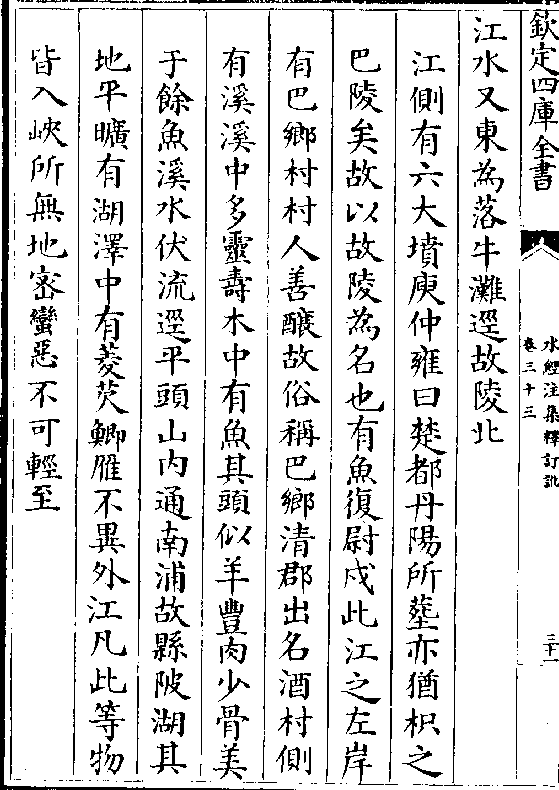 欽定四庫全書
水經注集釋訂訛
卷三十三
三十一
江水又東為落牛灘逕故陵北
江側有六大墳庾仲雍曰楚都丹陽所塟亦猶枳之
巴陵矣故以故陵為名也有魚復尉戍此江之左岸
有巴鄉村村人善釀故俗稱巴鄉清郡出名酒村側
有溪溪中多靈壽木中有魚其頭似羊豐肉少骨美
于餘魚溪水伏流逕平頭山内通南浦故縣陂湖其
地平曠有湖澤中有菱芡鯽雁不異外江凡此等物
皆入峽所無地密蠻惡不可輕至